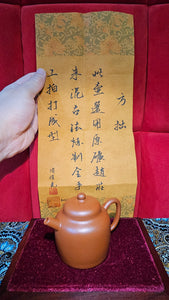 方拙
此壺選用原礦趙庄
朱泥古法煉制全手
工拍打成型